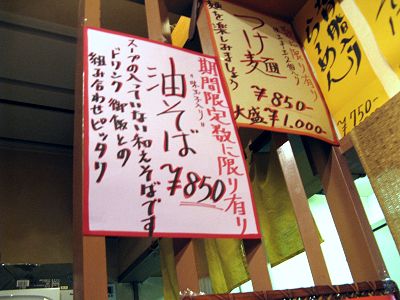 期間限定数に限り有り
味玉子入り
油そば
¥850
スープの入っていない和えそばです
ドリンク御飯との
組み合わせピッタリ
麺を楽しみましょう
つけ麺
¥850-
大盛¥1.000-
らぁめん
¥750-